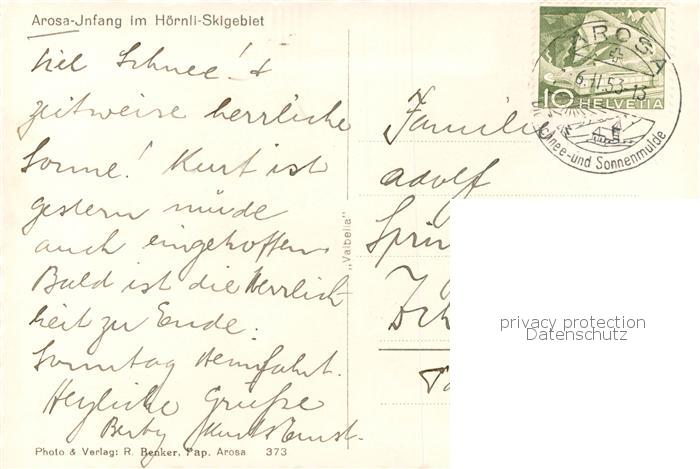 Arosa-Jnfang im Hörnli-Skigebiet
Viel Schnee! &
zeitweise herrliche
Sonne! Kurt ist
gestern müde
auch eingetroffen
Bald ist die Herrlich-
keit zu Ende.
Sonntag Heimfahrt.
Herzliche Grüsse
Berty Kurt & Ernst.
Photo & Verlag: R. Benker, Pap. Arosa 373
„Valbella"
AROSA
6.II.53-13
Schnee-und Sonnenmulde
10 HELVETIA
Famili
Adolf
Sprün
privacy protection
Datenschutz